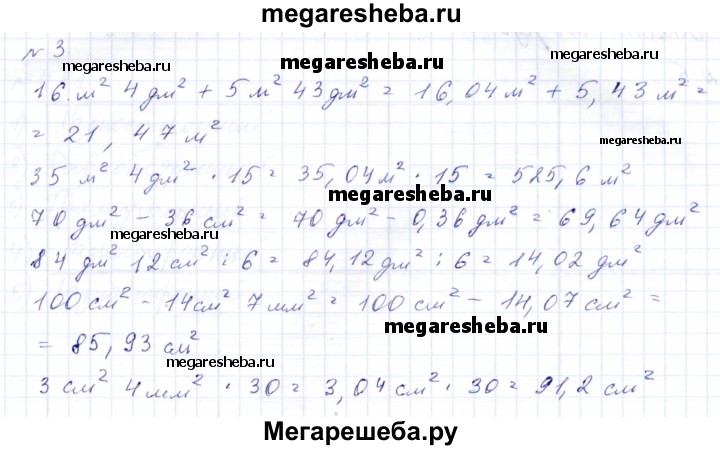 megaresheba.ru
№ 3
megaresheba.ru
megaresheba.ru
16 м² 4 дм² + 5 м² 43 дм² = 16,04 м² + 5,43 м² =
megaresheba.ru
= 21,47 м²
35 м² 4 дм² · 15 = 35,04 м² · 15 = 525,6 м²
megaresheba.ru
70 дм² - 36 см² = 70 дм² - 0,36 дм² = 69,64 дм²
megaresheba.ru
84 дм² 12 см² : 6 = 84,12 дм² : 6 = 14,02 дм²
100 см² - 14 см² 7 мм² = 100 см² - 14,07 см² =
megaresheba.ru
= 85,93 см²
megaresheba.ru
3 см² 4 мм² · 30 = 3,04 см² · 30 = 91,2 см²
Мегарешеба.ру